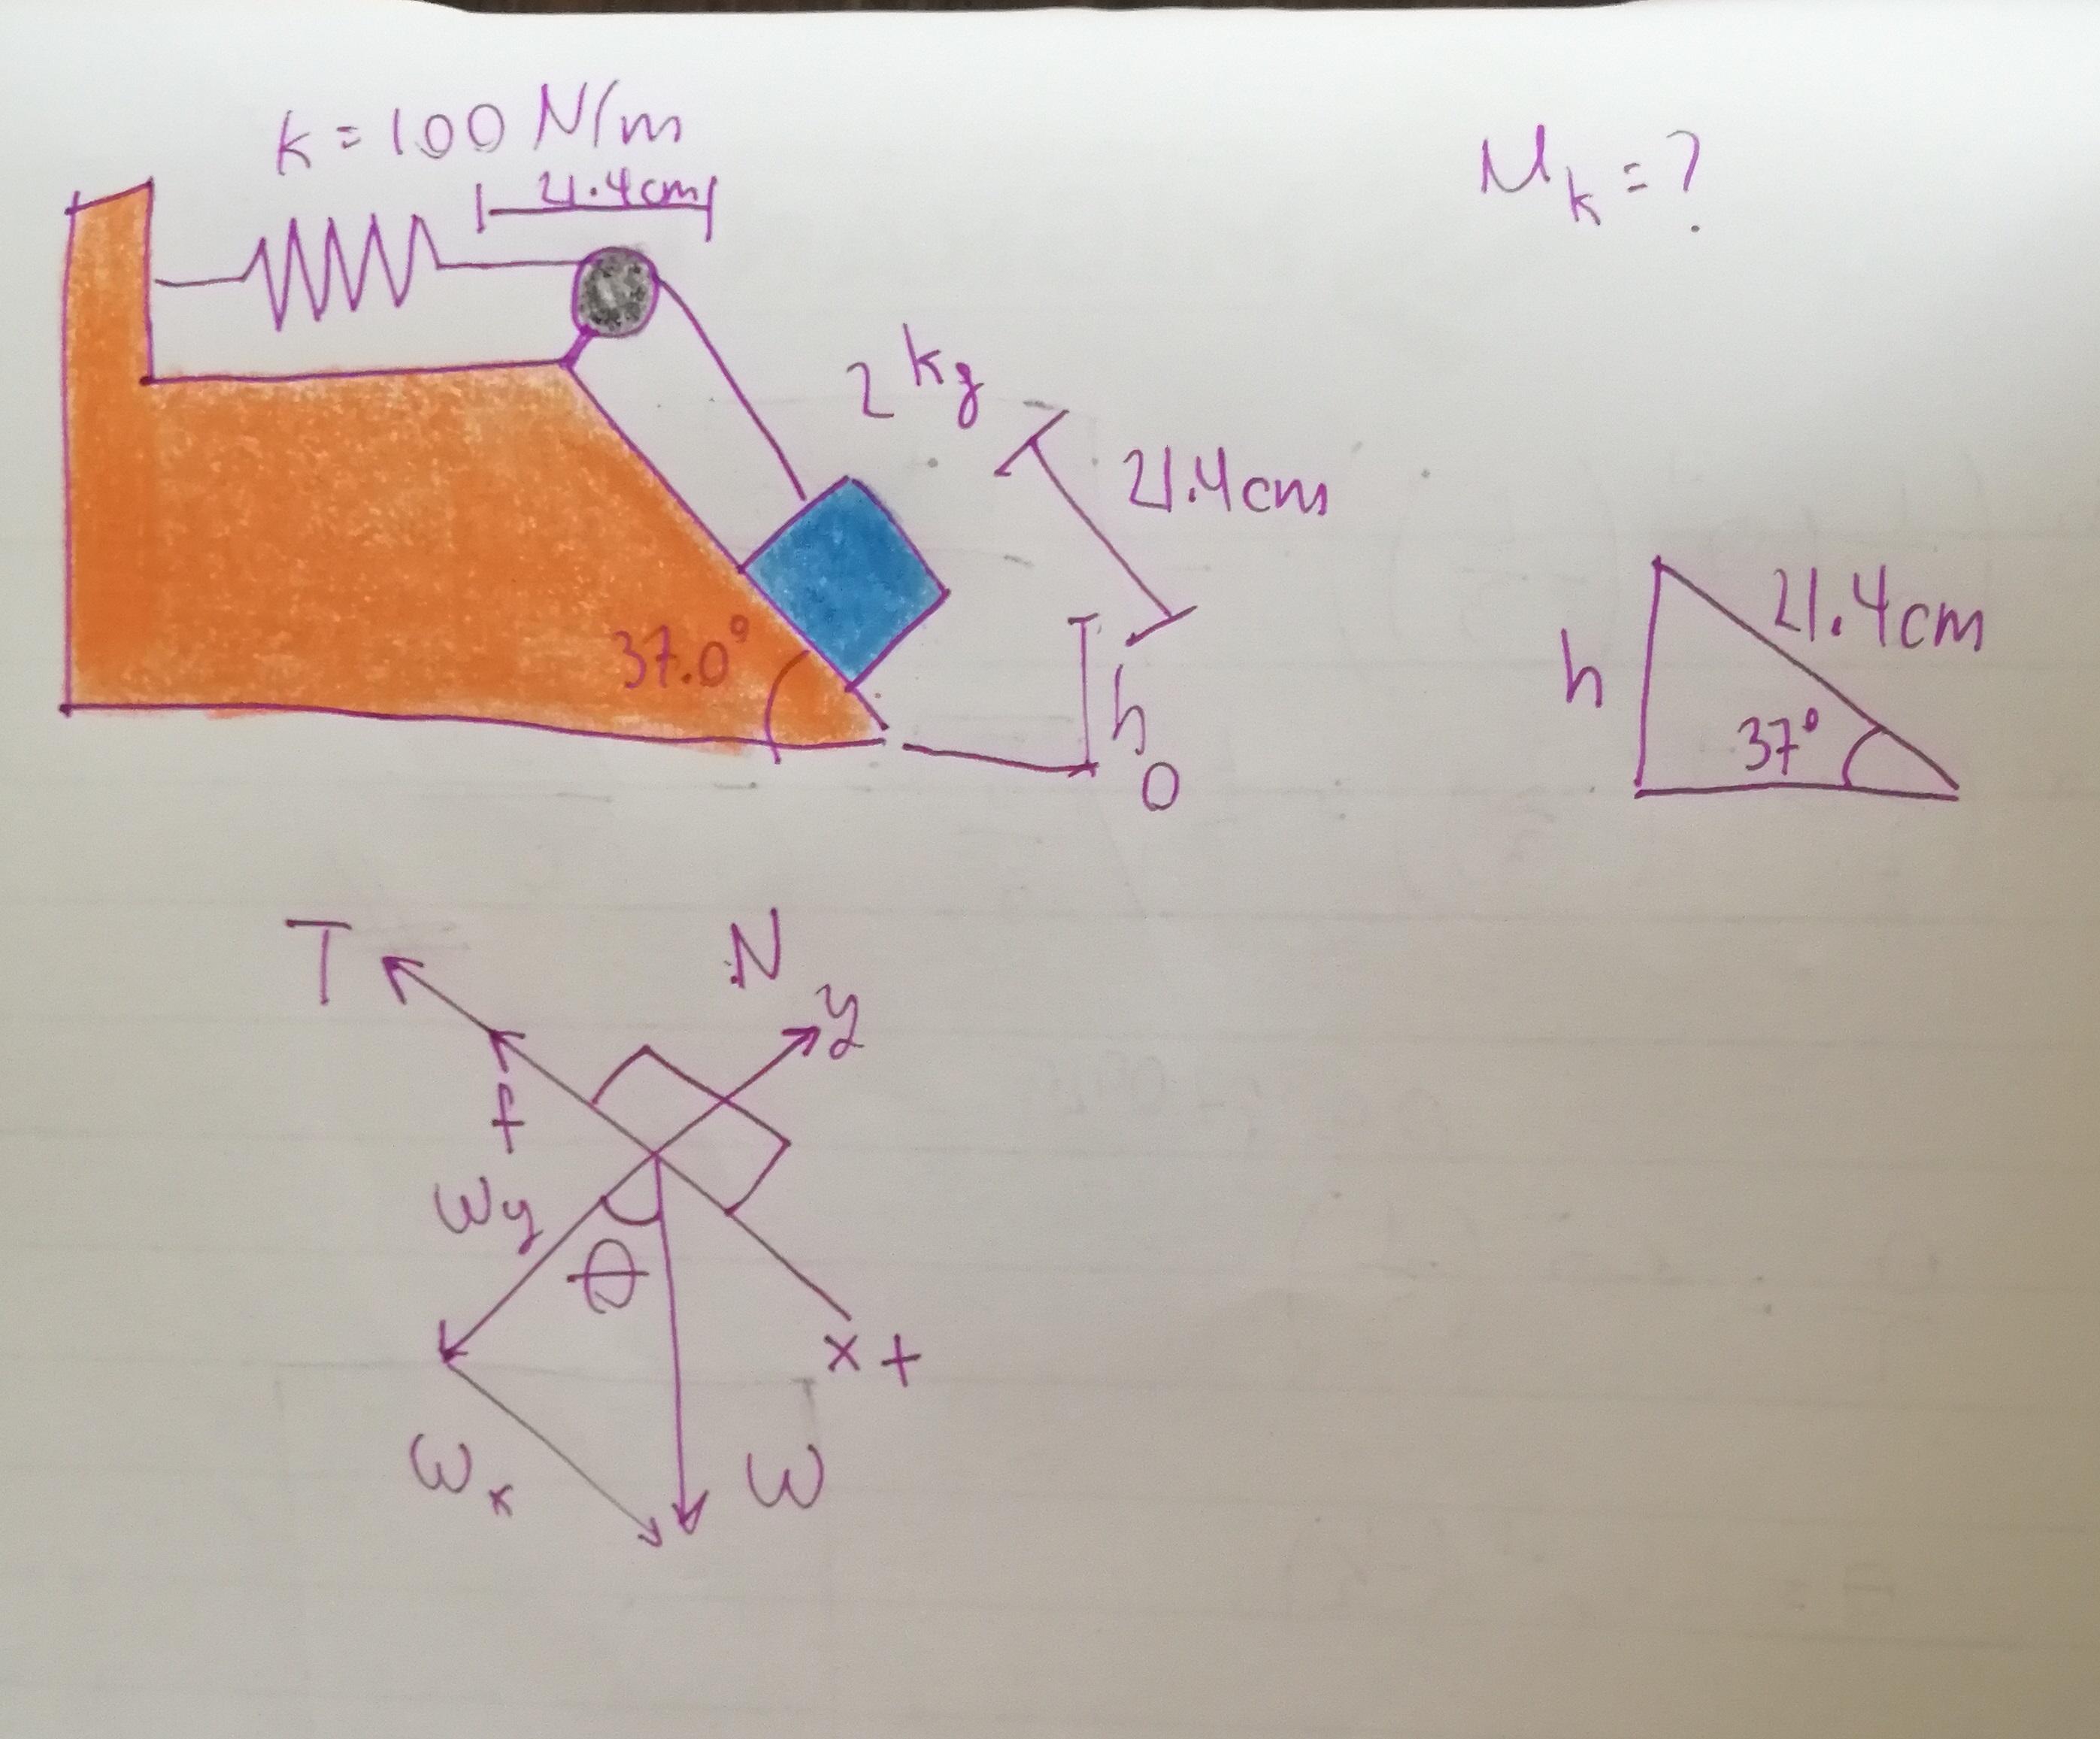 k = 100 N/m
21.4cm
μk = ?
2 kg
21.4cm
37.0°
h
0
h
21.4cm
37°
T
N
y
f
wy
θ
x +
wx
w